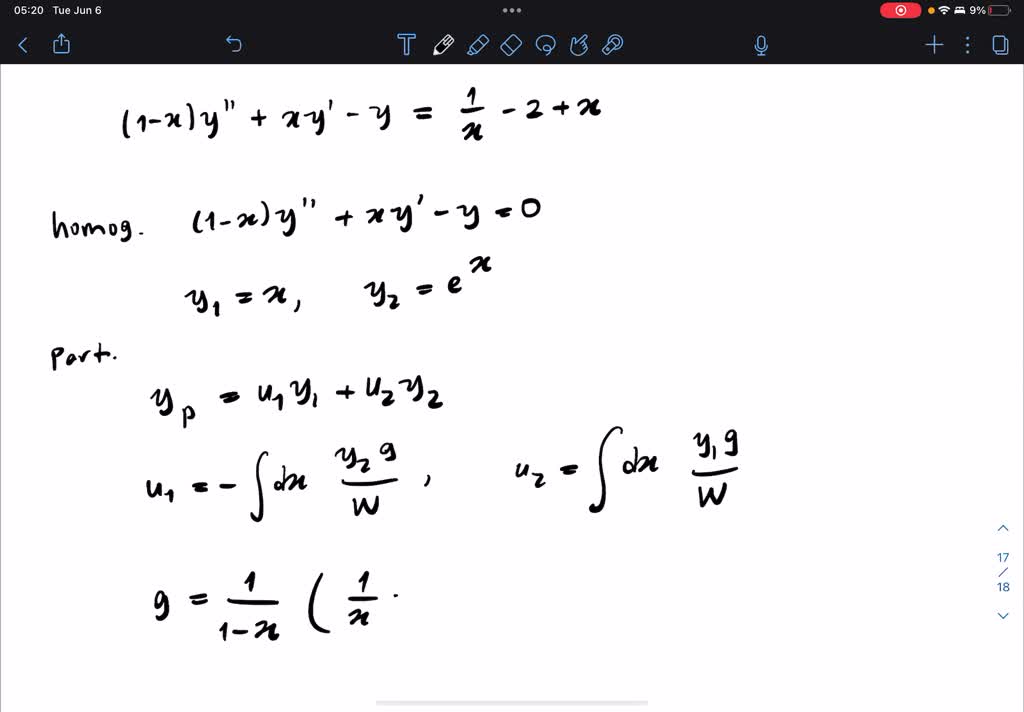 05:20 Tue Jun 6
9%
(1-x)y'' + xy' - y = 1/x - 2 + x
homog. (1-x)y'' + xy' - y = 0
y₁ = x, y₂ = eˣ
Part.
yₚ = u₁y₁ + u₂y₂
u₁ = - ∫ dx y₂g/W , u₂ = ∫ dx y₁g/W
g = 1/(1-x) ( 1/x ·
17
/
18